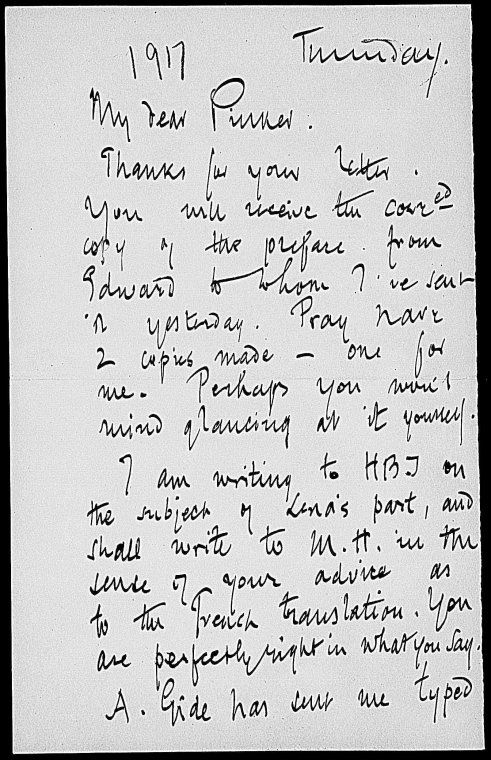 1917 Tuesday.
My dear Pinker.
Thanks for your letter.
You will receive the corred
copy of the preface from
Edward to whom I've sent
it yesterday. Pray have
2 copies made – one for
me. Perhaps you won't
mind glancing at it yourself.
I am writing to HBI on
the subject of Lena's part, and
shall write to M.H. in the
sense of your advice as
to the French translation. You
are perfectly right in what you say.
A. Gide has sent me typed